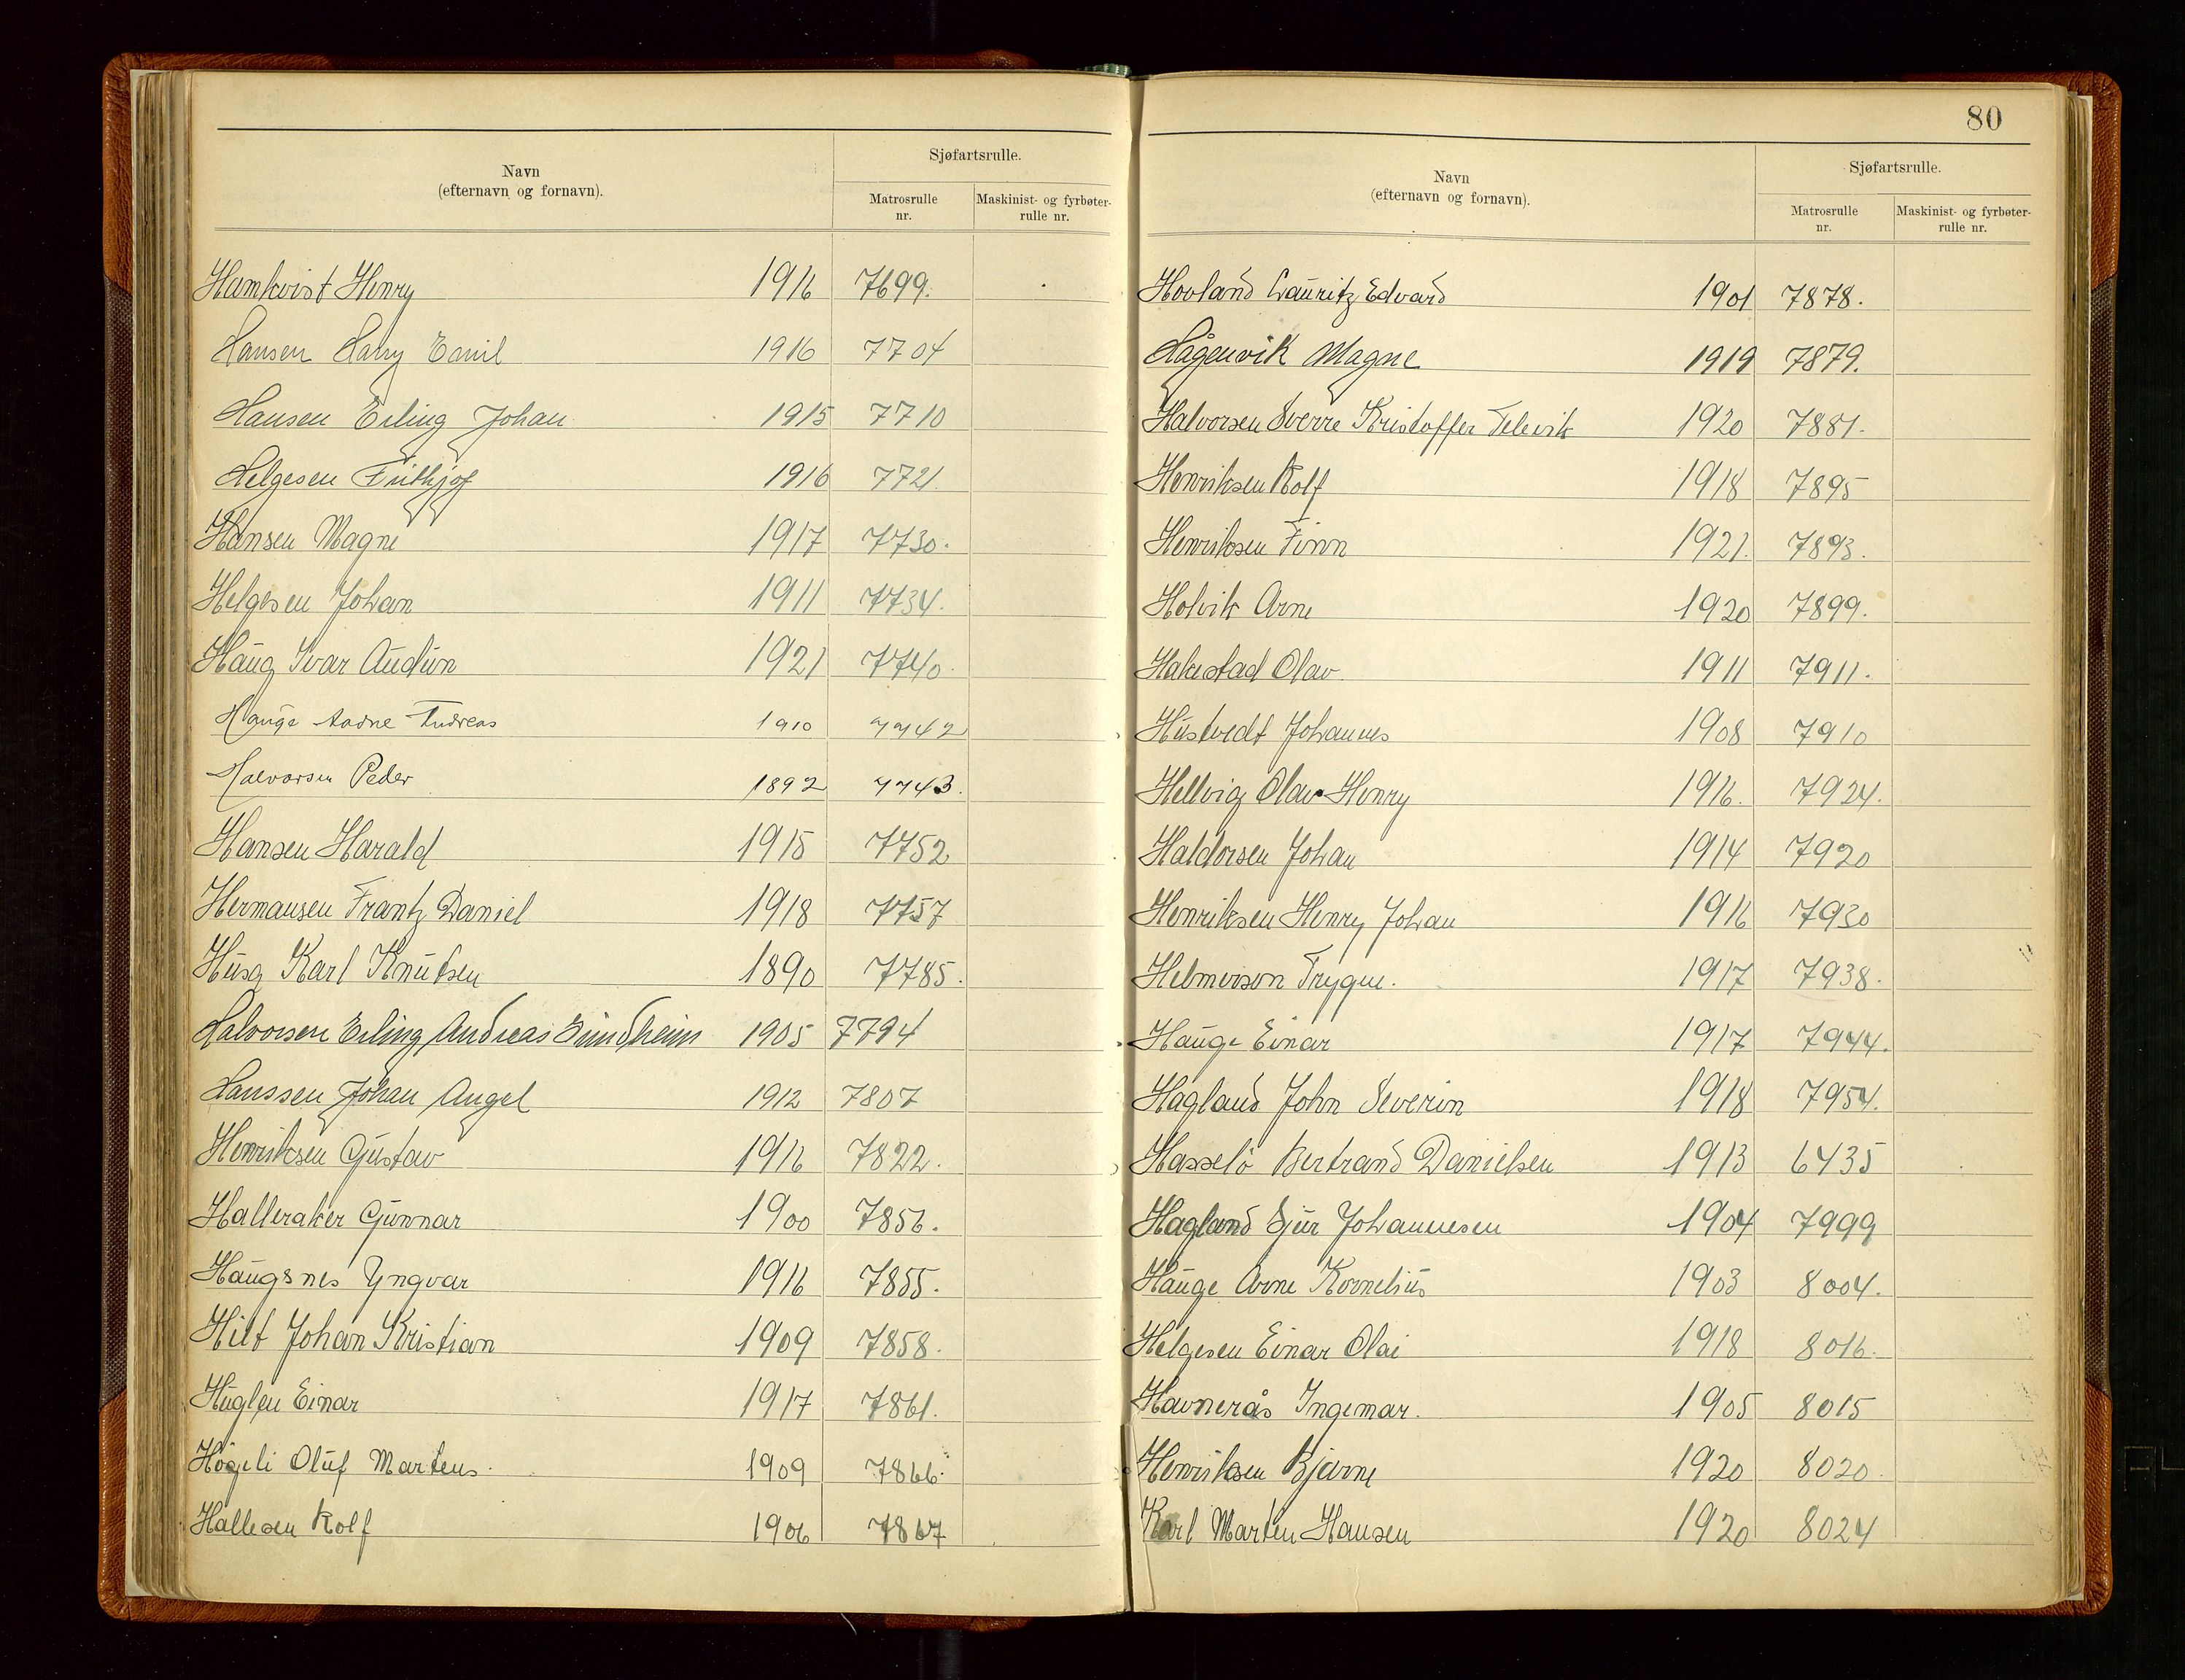 Navn
(efternavn og fornavn).
Sjøfartsrulle.
Matrosrulle nr.
Maskinist- og fyrbøter-rulle nr.
Hamkvist Henry 1916 7699.
Hansen Harry Emil 1916 7704
Hansen Erling Johan 1915 7710
Helgesen Frithjof 1916 7721
Hansen Magne 1917 7730.
Helgesen Johan 1911 7734.
Haug Ivar Audun 1921 7740.
Hauge Aadne Andreas 1910 7742
Halvorsen Peder 1892 7743.
Hansen Harald 1915 7752
Hermansen Frantz Daniel 1918 7757
Husø Karl Knutsen 1890 7785.
Halvorsen Erling Andreas Sundheim 1905 7794
Hanssen Johan Angel 1912 7807
Henriksen Gustav 1916 7822.
Halleraker Gunnar 1900 7856.
Haugsnes Yngvar 1916 7855.
Hilt Johan Kristian 1909 7858.
Huglen Einar 1917 7861.
Högeli Oluf Martens. 1909 7866.
Hallesen Rolf 1906 7867
80
Navn
(efternavn og fornavn).
Sjøfartsrulle.
Matrosrulle nr.
Maskinist- og fyrbøter-rulle nr.
Hovland Lauritz Edvard 1901 7878.
Hågenvik Magne 1919 7879.
Halvorsen Sverre Kristoffer Televik 1920 7881.
Henriksen Rolf 1918 7895
Henriksen Finn 1921. 7893.
Holvik Arne 1920 7899.
Hakestad Olav. 1911 7911.
Hustvedt Johannes 1908 7910
Hellvig Olav Henry 1916. 7924.
Haldorsen Johan 1914 7920
Henriksen Henry Johan 1916 7930
Helmerson Trygve. 1917 7938.
Hauge Einar 1917 7944.
Hagland John Severin 1918 7954.
Hasselö Bertrand Danielsen 1913 6435
Hagland Sjur Johannesen 1904 7999
Hauge Arne Kornelius 1903 8004.
Helgesen Einar Olai 1918 8016.
Havnerås Ingemar. 1905 8015
Henriksen Bjarne 1920 8020.
Karl Marten Hansen 1920 8024